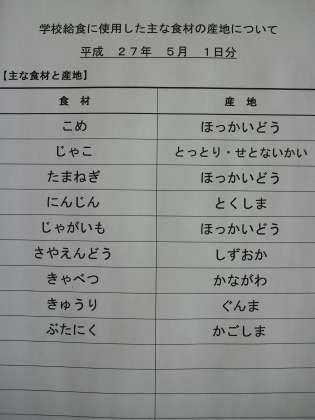 学校給食に使用した主な食材の産地について
平成　２７年　５月　１日分
【主な食材と産地】
食　材　産　地
こめ　ほっかいどう
じゃこ　とっとり・せとないかい
たまねぎ　ほっかいどう
にんじん　とくしま
じゃがいも　ほっかいどう
さやえんどう　しずおか
きゃべつ　かながわ
きゅうり　ぐんま
ぶたにく　かごしま